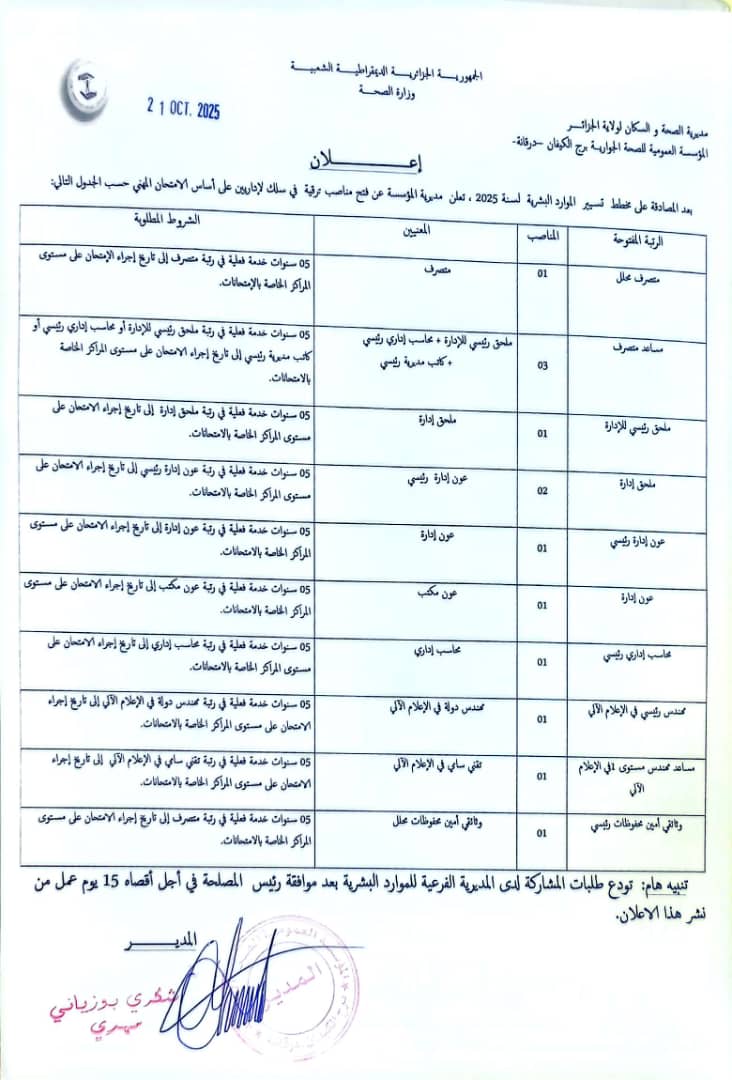 الجمهوريـــة الجزائريـــة الديمقراطيـــة الشعبيـــة
وزارة الصحـــة
21 OCT. 2025
مديرية الصحة و السكان لولاية الجزائـــر
المؤسسة العمومية للصحة الجوارية برج الكيفان –درقانة-
إعـــــــــلان
بعد المصادقة على مخطط تسيير الموارد البشرية لسنة 2025 ، تعلن مديرية المؤسسة عن فتح مناصب ترقية في سلك لإداريين على أساس الامتحان المهني حسب الجدول التالي:
الرتبة المفتوحة المناصب المعنيين الشروط المطلوبة
متصرف محلل 01 متصرف 05 سنوات خدمة فعلية في رتبة متصرف إلى تاريخ إجراء الإمتحان على مستوى
المراكز الخاصة بالإمتحانات.
مساعد متصرف 03 ملحق رئيسي للإدارة + محاسب إداري رئيسي 05 سنوات خدمة فعلية في رتبة ملحق رئيسي للإدارة أو محاسب إداري رئيسي أو
+ كاتب مديرية رئيسي كاتب مديرية رئيسي إلى تاريخ إجراء الامتحان على مستوى المراكز الخاصة
بالامتحانات.
ملحق رئيسي للإدارة 01 ملحق إدارة 05 سنوات خدمة فعلية في رتبة ملحق إدارة إلى تاريخ إجراء الامتحان على
مستوى المراكز الخاصة بالامتحانات.
ملحق إدارة 02 عون إدارة رئيسي 05 سنوات خدمة فعلية في رتبة عون إدارة رئيسي إلى تاريخ إجراء الامتحان على
مستوى المراكز الخاصة بالامتحانات.
عون إدارة رئيسي 01 عون إدارة 05 سنوات خدمة فعلية في رتبة عون إدارة إلى تاريخ إجراء الامتحان على مستوى
المراكز الخاصة بالامتحانات.
عون إدارة 01 عون مكتب 05 سنوات خدمة فعلية في رتبة عون مكتب إلى تاريخ إجراء الامتحان على مستوى
المراكز الخاصة بالامتحانات.
محاسب إداري رئيسي 01 محاسب إداري 05 سنوات خدمة فعلية في رتبة محاسب إداري إلى تاريخ إجراء الامتحان على
مستوى المراكز الخاصة بالامتحانات.
مهندس رئيسي في الإعلام الآلي 01 مهندس دولة في الإعلام الآلي 05 سنوات خدمة فعلية في رتبة مهندس دولة في الإعلام الآلي إلى تاريخ إجراء
الامتحان على مستوى المراكز الخاصة بالامتحانات.
مساعد مهندس مستوى 1في الإعلام 01 تقني سامي في الإعلام الآلي 05 سنوات خدمة فعلية في رتبة تقني سامي في الإعلام الآلي إلى تاريخ إجراء
الآلي الامتحان على مستوى المراكز الخاصة بالامتحانات.
وثائقي أمين محفوظات رئيسي 01 وثائقي أمين محفوظات محلل 05 سنوات خدمة فعلية في رتبة متصرف إلى تاريخ إجراء الامتحان على مستوى
المراكز الخاصة بالامتحانات.
تنبيه هام: تودع طلبات المشاركة لدى المديرية الفرعية للموارد البشرية بعد موافقة رئيس المصلحة في أجل أقصاه 15 يوم عمل من
نشر هذا الاعلان.
المديـــــر
المدير
شكري بوزياني
مهري